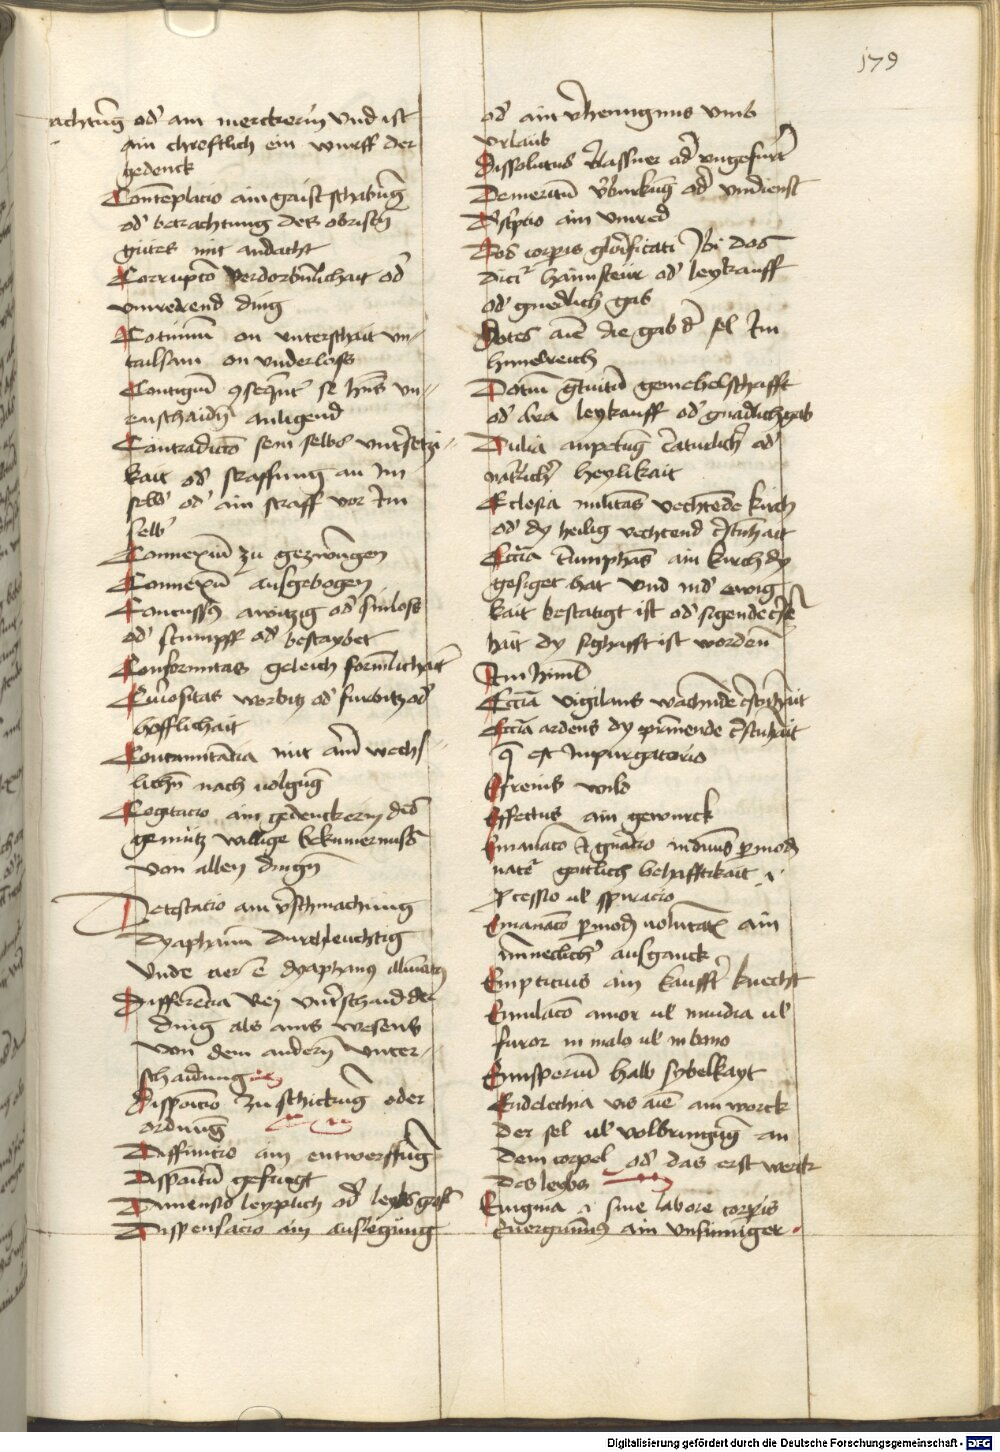 179
achtu̅g od' ain merckerin vnd ist
ain chreftlich ein wurff der
gedenck
Conte̅placio ain gaist schawu̅g
od' betrachtung des obristn̅
gutes mit andacht
Corrupcō verdorbnlichait od'
vnwerend ding
Cotinuu̅ on vnterschait vn-
tailsam on vnderloss
Contiguu̅
enschaidn̅ anligend
Contradictō sein selbs
kait od' straffung an im
selb' od' ain straff vor im
selb'
Connexiu̅ zu gezwungen
Connexu̅ ausgebogen
Concussus awitzig od' sinloss
od' stumpff od' bestaybet
Conformitas geleich formlichait
Curiositas worbitz od' furbitz od'
hofflichait
mit wechs-
lichn̅ nach uolgu̅g
Cogitacio ain gedenckern des
gemutz willige bekumernuss
von allen dingn̅
Detestacio ain v'schmachung
Dyaphanu̅ durchleuchtig
vnde aer ē dyaphanus
Differe̅cia vnt'schaid der
ding als ains wesens
von dem andern vnter-
schaidung
Dispoicio zu schickung oder
ordnung
Diffinitio ain entwerffu̅g
Dispoitu̅ gefuegt
Dimensio leyplich od' leybsgroß
Dispensacio ain auslegung
od' ain v'henngnus vmb
vrlaub
Dissolutus v'lassner od' vngefurt
Demeritu̅ v'wurkug od' vndienst
ain vnred
Dos corporis glorificati Ibi dos
dicit' haimsteur od' leykauff
od' gnedlich gab
Dotes aīe die gab d' sel Im
himelreich
Dotiu̅ gemehelschafft
od' leykauff od' gnadlich gab
Dulia anpetu̅g c'eaturlich' od'
naturlich' heylikait
Eclesia militans vechtende kirch
od' dy heilig vechtend c'stnhait
Eccīa t'iumphans ain kirch dy
gesiget hat vnd in d' ewig
kait bestatigt ist od' sigende c'ste̅
hait dy sighafft ist worden
Im himl'
Eccīa vigilans wachende c'stnhait
Eccīa ardens dy prinnende c'stnhait
q̅ est in purgatorio
Efrenis wild
Effectus ain gewurck
Emanacō in diuinis p̱ modu̅
natē gotlich behafftikait
p̱cessio ul' spiracio
Emanacō p̱ modu̅ uoluntatis ain
mineclich' ausganck
Empticius ain kaufft' knecht
Emulacō amor ul' inuidia ul'
furor in malo ul' in bono
Emisperiu̅ halb sybelkayt
Endelechia vis aīe ain worck
der sel ul' volbringug an
dem corpel od' das erst werck
des leybs
Enigma sine labore corporis
Energuminus ain vnsinniger
Digitalisierung gefördert durch die Deutsche Forschungsgemeinschaft - DFG